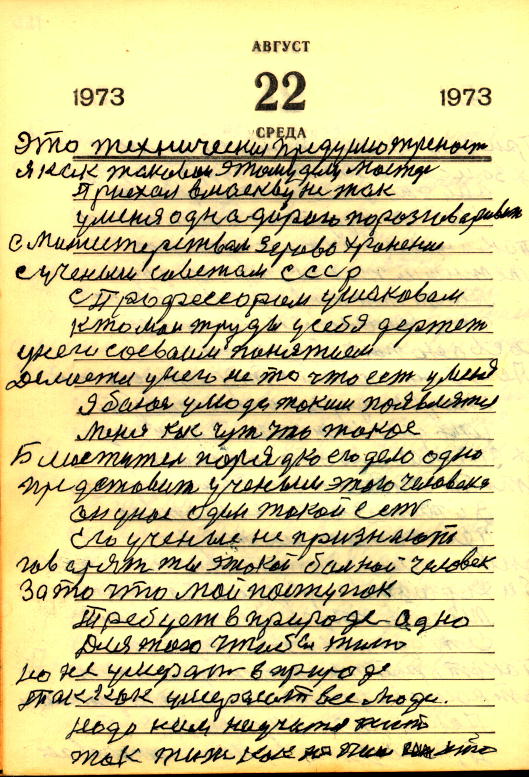 АВГУСТ
1973 22 1973
СРЕДА
Это технически
я как таковой этому делу мастер
Приехал в москву не так
у меня одна дорога поразговаривать
с Министерствам здравохранени
с ученым советам СССР
с Профессорам ушаковам
кто маи труды у себя держет
у него сосваим понятием
Делиется у него не то что ест у меня
я балои умо да таким появлятся
меня как чут что такое
Блюстител порядко его дело одно
представит ученым этого человека
он у нас один такой ест
Его учение не признают
гаварят ты такой балной человек
За то что мой поступок
Требует в природе одно
Для того чтобы жит
но не умерат в природе
так как умерают все люди.
надо нам научится жит
так жит как